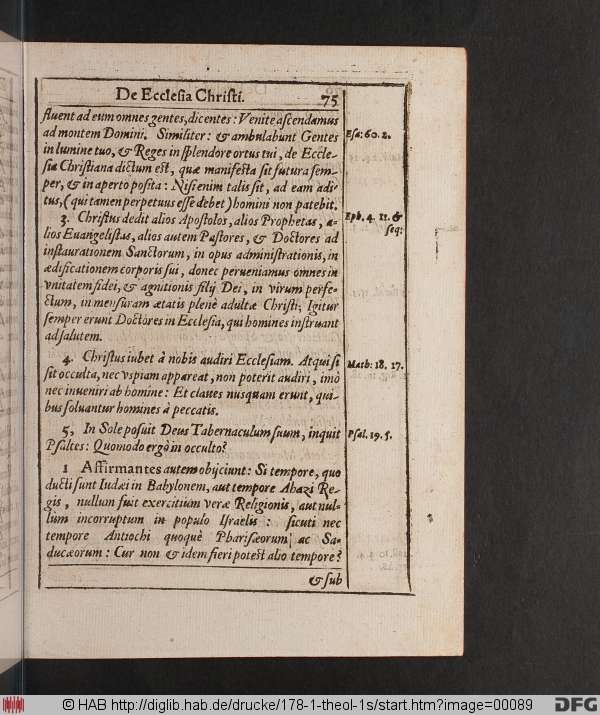 De Ecclesia Christi. 75
fluent ad eum omnes gentes, dicentes: Venite ascendamus
ad montem Domini. Similiter: & ambulabunt Gentes
in lumine tuo, & Reges in splendore ortus tui, de Eccle-
sia Christiana dictum est, quæ manifesta sit futura sem-
per, & in aperto posita: Nisi enim talis sit, ad eam adi-
tus, (qui tamen perpetuus esse debet) homini non patebit.
3. Christus dedit alios Apostolos, alios Prophetas, a-
lios Euangelistas, alios autem Pastores, & Doctores ad
instaurationem Sanctorum, in opus administrationis, in
ædificationem corporis sui, donec perueniamus omnes in
vnitatem fidei, & agnitionis filij Dei, in virum perfe-
ctum, in mensuram ætatis plenè adultæ Christi; Igitur
semper erunt Doctores in Ecclesia, qui homines instruant
ad salutem.
4. Christus iubet à nobis audiri Ecclesiam. Atqui si
sit occulta, nec vspiam appareat, non poterit audiri, imò
nec inueniri ab homine: Et claues nusquam erunt, qui-
bus soluantur homines à peccatis.
5, In Sole posuit Deus Tabernaculum suum, inquit
Psaltes: Quomodo ergò in occulto?
1 Affirmantes autem obijciunt: Si tempore, quo
ducti sunt Iudæi in Babylonem, aut tempore Ahazi Re-
gis, nullum fuit exercitium veræ Religionis, aut nul-
lum incorruptum in populo Israelis: sicuti nec
tempore Antiochi quoquè Pharisæorum, ac Sa-
ducæorum: Cur non & idem fieri potest alio tempore?
& sub
Esa: 60. 2.
Eph. 4. 11. &
seq:
Math: 18. 17.
Psal. 19. 5.
© HAB http://diglib.hab.de/drucke/178-1-theol-1s/start.htm?image=00089
DFG